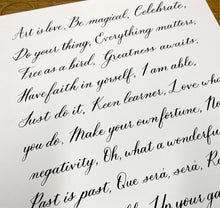 Art is love, Be magical, Celebrate,
Do your thing, Everything matters,
Free as a bird, Greatness awaits.
Have faith in yorself, I am able,
Just do it, Keen learner, Love who
you do, Make your own fortune, No
negativity, Oh, what a wonderful
Past is past, Que será, será, R
Up your ga